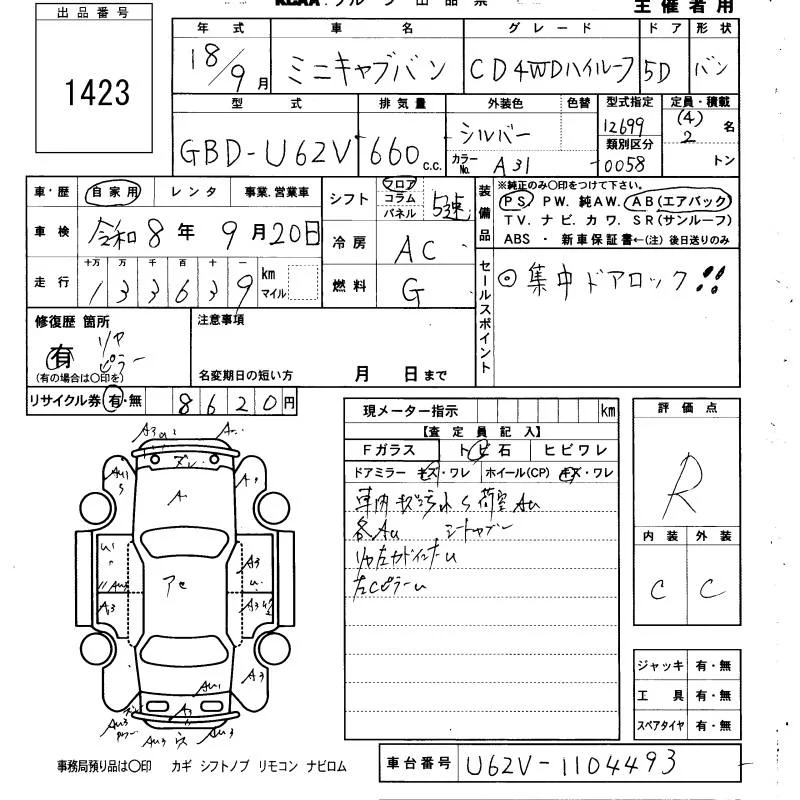 出品番号
1423
主催者用
年式 車名 グレード ドア 形状
18/9月 ミニキャブバン CD4WDハイルーフ 5D バン
型式 排気量 外装色 色替 型式指定 定員・積載
GBD-U62V 660c.c. シルバー 12699 (4) 2 名
カラーNo. A31 類別区分 0058 トン
車・歴 自家用 レンタ 事業.営業車
シフト フロア コラム パネル 5速
装備品 ※純正のみ〇印をつけて下さい。
PS. PW. 純AW. AB(エアバック)
TV. ナビ. カワ. SR(サンルーフ)
ABS・新車保証書←(注)後日送りのみ
車検 令和8年9月20日
冷房 AC
走行 十万 万 千 百 十 一
133639 km マイル
燃料 G
セールスポイント ◎集中ドアロック!!
修復歴 箇所 注意事項
有 リヤピラー
(有の場合は〇印を) 名変期日の短い方 月 日まで
リサイクル券 有・無 8620円
現メーター指示 km
評価点
R
【査定員記入】
Fガラス トビ石 ヒビワレ
ドアミラー キズ・ワレ ホイール(CP) キズ・ワレ
内装 外装
C C
車内 荷室AU
各AU
左CピラーU
A3 A A1 A3 U A3 A3 A3 AU3
ジャッキ 有・無
工具 有・無
スペアタイヤ 有・無
事務局預り品は〇印 カギ シフトノブ リモコン ナビロム
車台番号 U62V-1104493